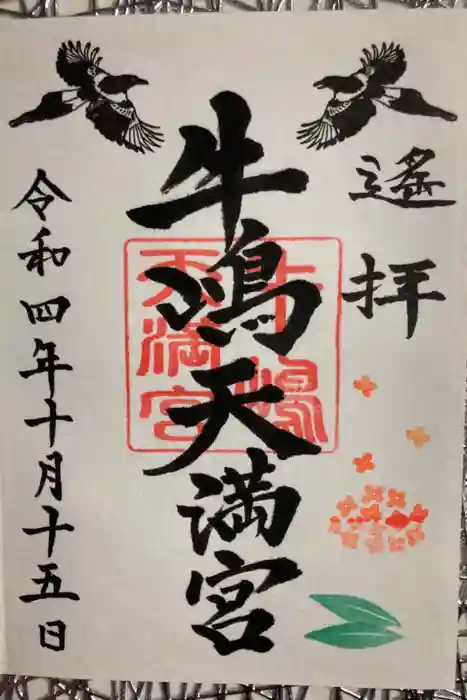 遙拝
牛嶋天満宮
牛嶋
天満宮
令和四年十月十五日